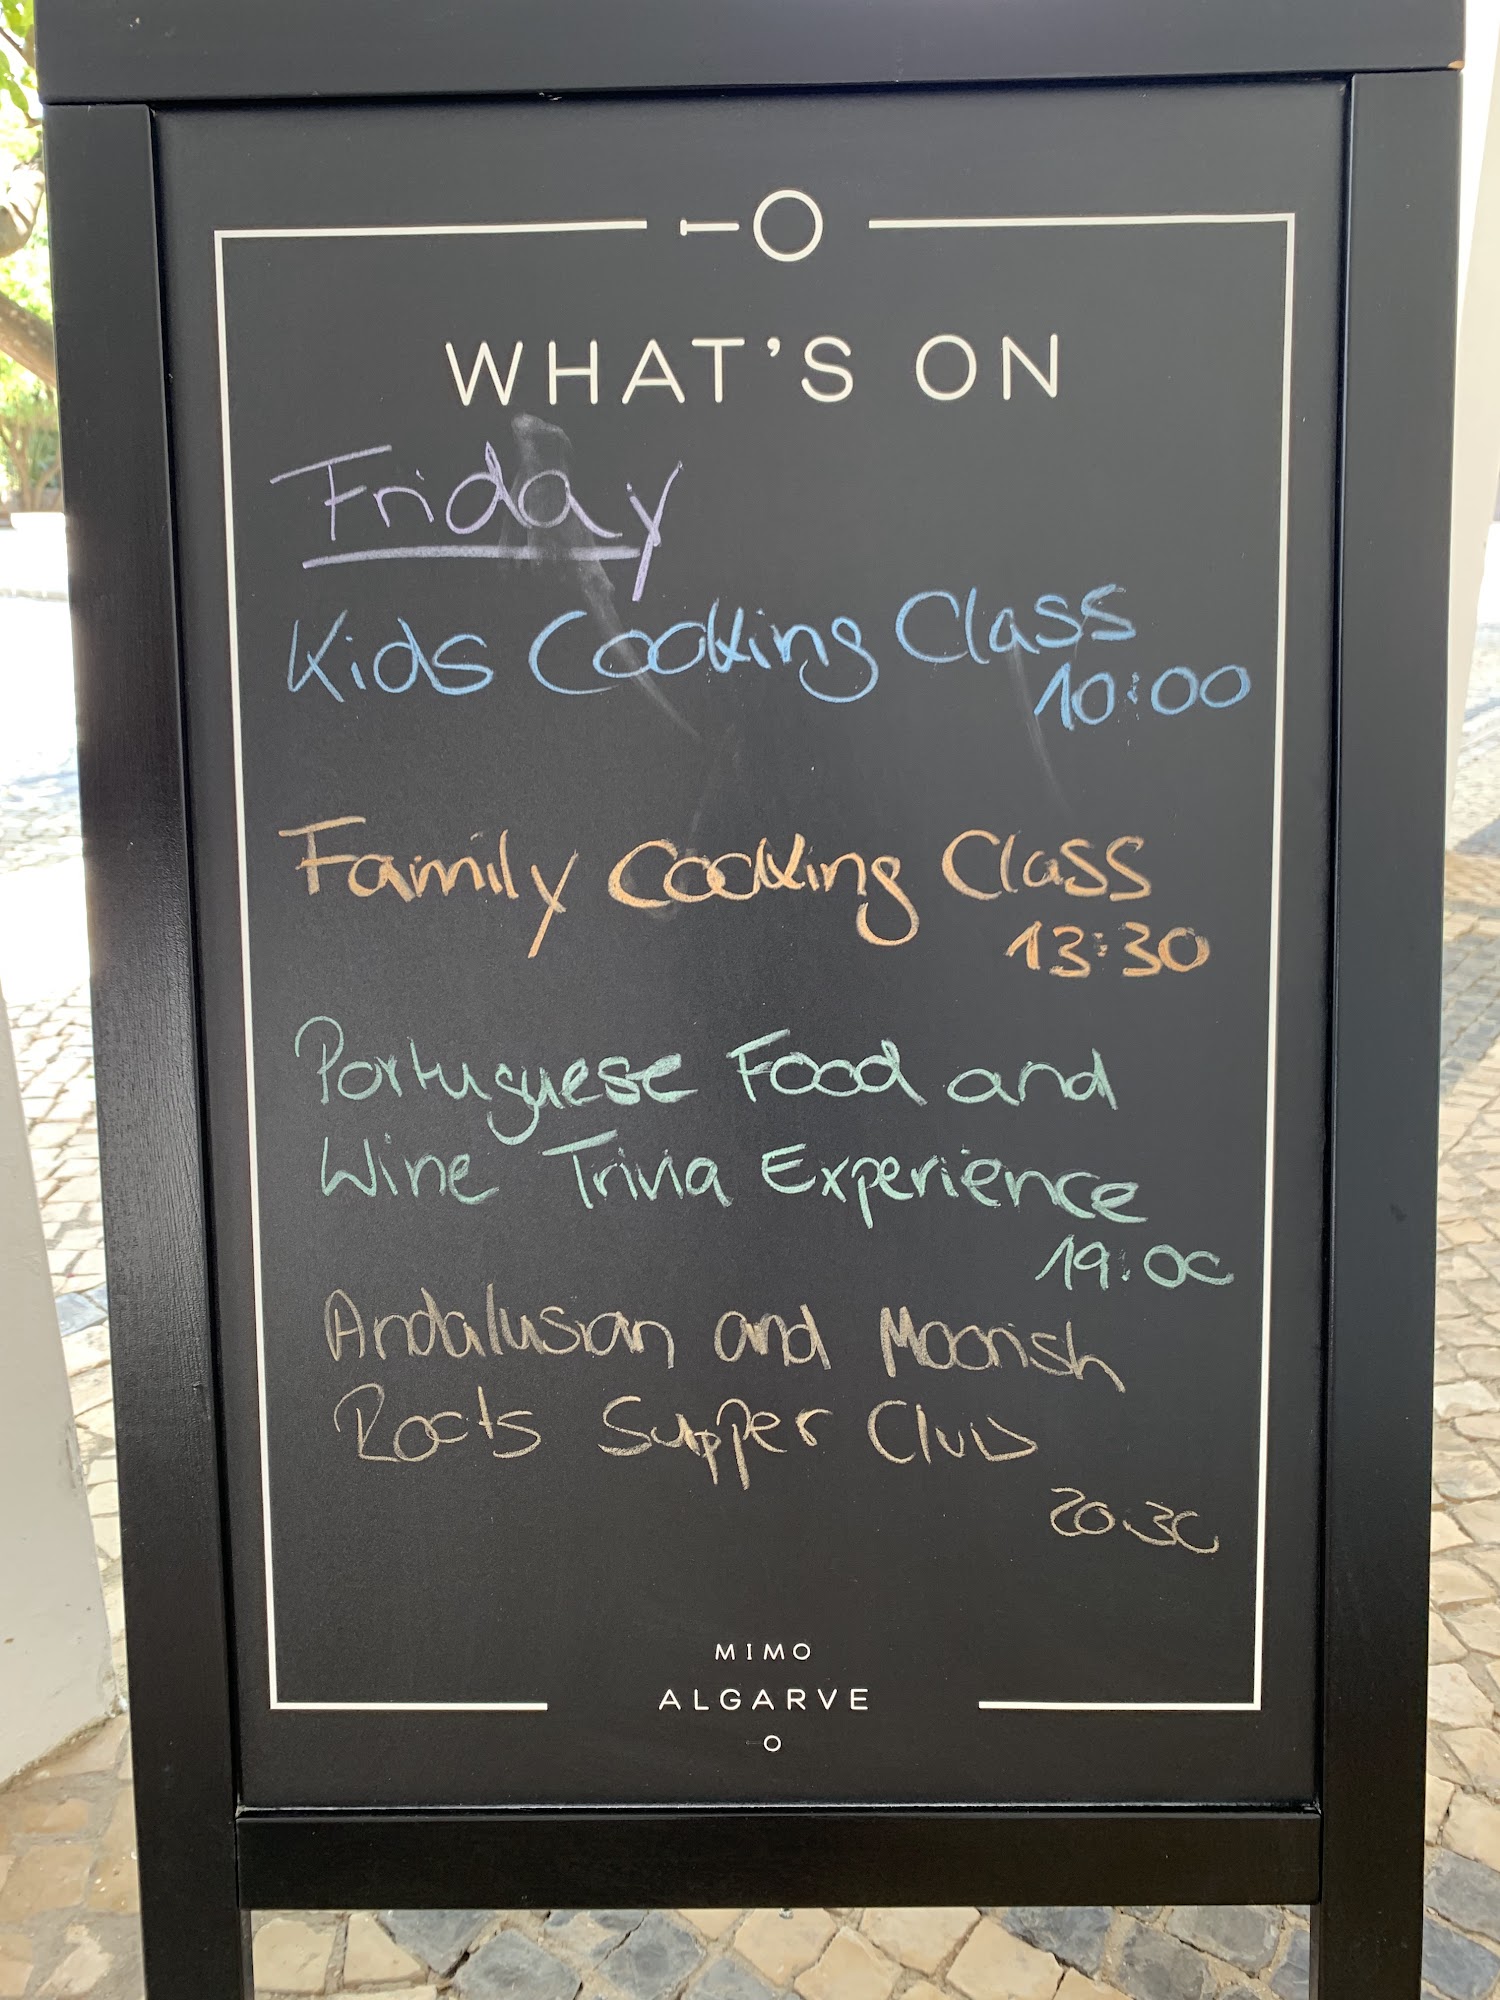 WHAT'S ON
Friday
Kids Cooking Class
10:00
Family Cooking Class
13:30
Portuguese Food and
Wine Trivia Experience
19:00
Andalusian and Moorish
Roots Supper Club
20.30
MIMO
ALGARVE